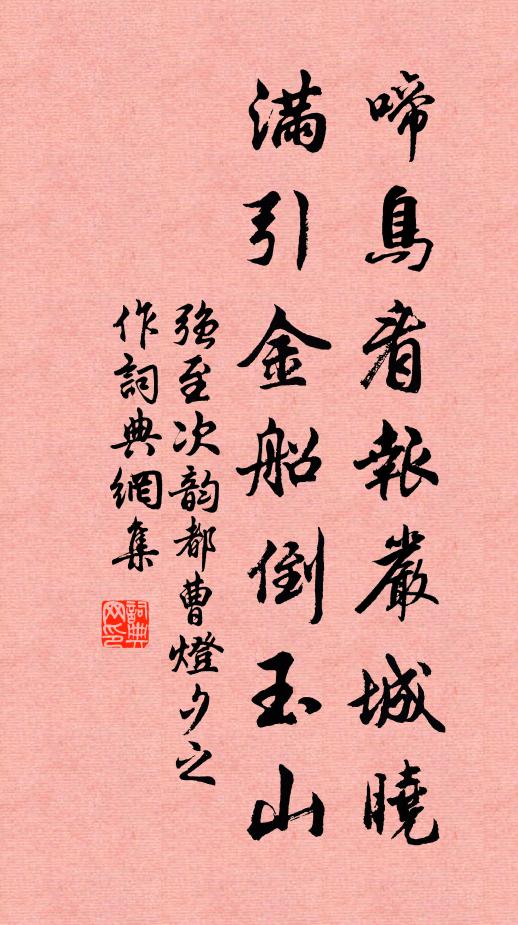 啼鳥看報嚴城曉
滿引金船倒玉山
強至次韵都曹燈夕之
作詞典網集
詞典网印